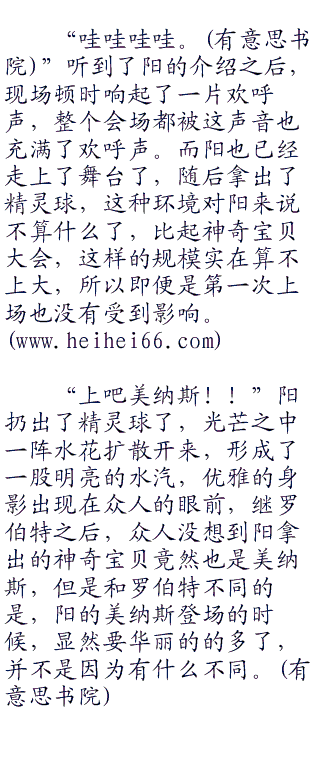 “哇哇哇哇。(有意思书
院)”听到了阳的介绍之后，
现场顿时响起了一片欢呼
声，整个会场都被这声音也
充满了欢呼声。而阳也已经
走上了舞台了，随后拿出了
精灵球，这种环境对阳来说
不算什么了，比起神奇宝贝
大会，这样的规模实在算不
上大，所以即便是第一次上
场也没有受到影响。
(www.heihei66.com)
“上吧美纳斯！！”阳
扔出了精灵球了，光芒之中
一阵水花扩散开来，形成了
一股明亮的水汽，优雅的身
影出现在众人的眼前，继罗
伯特之后，众人没想到阳拿
出的神奇宝贝竟然也是美纳
斯，但是和罗伯特不同的
是，阳的美纳斯登场的时
候，显然要华丽的的多了，
并不是因为有什么不同。(有
意思书院)